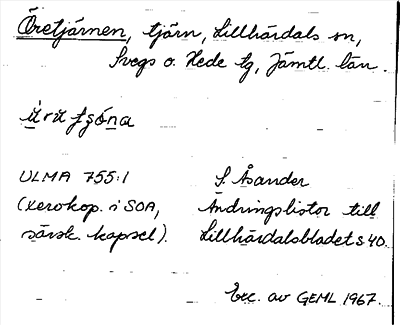 Öretjärnen, tjärn, Lillhärdals sn,
Svegs o. Hede tg, Jämtl. län.
ULMA 755:1
S. Åsander
(xerokop. i SOA,
Ändringslistor till
särsk. kapsel).
Lillhärdalsbladet s 40.
Exc. av GEML 1967.